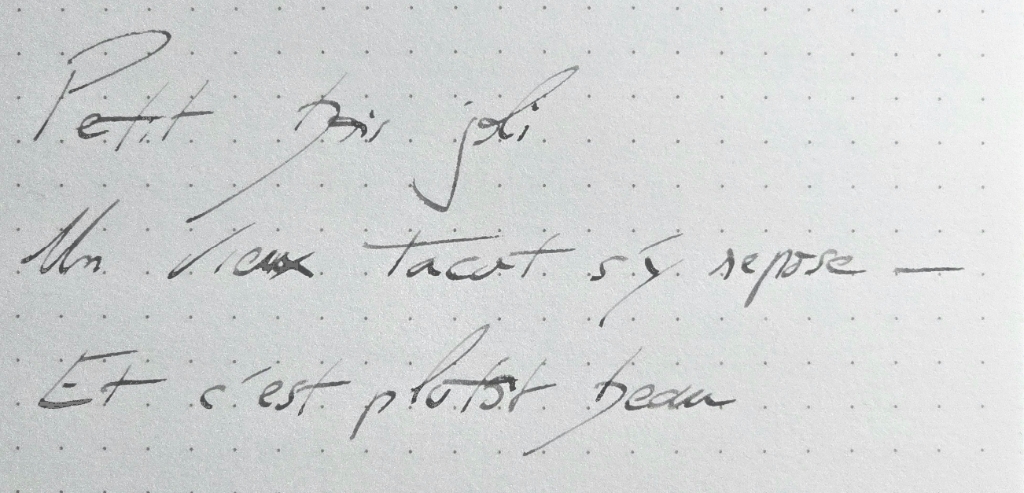 Petit bois joli
Un vieux tacot s'y repose —
Et c'est plutôt beau